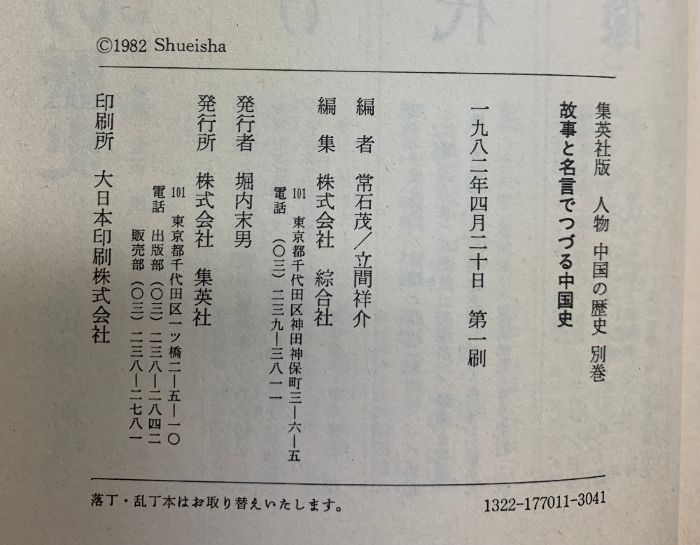 ©1982 Shueisha
集英社版 人物 中国の歴史 別巻
故事と名言でつづる中国史
一九八二年四月二十日 第一刷
編者 常石茂／立間祥介
編集 株式会社 綜合社
101 東京都千代田区神田神保町三―六―五
電話 （〇三）二三九―三八一一
発行者 堀内末男
発行所 株式会社 集英社
101 東京都千代田区一ツ橋二―五―一〇
電話 出版部（〇三）二三八―二八四二
販売部（〇三）二三八―二七八一
印刷所 大日本印刷株式会社
落丁・乱丁本はお取り替えいたします。
1322-177011-3041